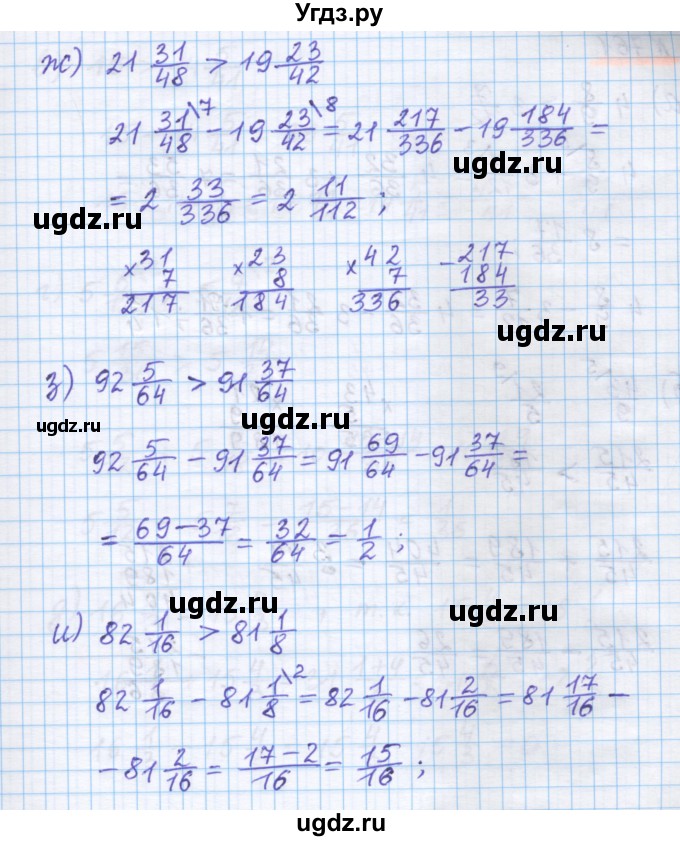 Угдз.ру
ж) 21 31/48 > 19 23/42
21 31/48 \7 - 19 23/42 \8 = 21 217/336 - 19 184/336 =
ugdz.ru
= 2 33/336 = 2 11/112 ;
ugdz.ru
×31 ×23 ×42 -217
7 8 7 184
217 184 336 33
ugdz.ru
з) 92 5/64 > 91 37/64
ugdz.ru
ugdz.ru
92 5/64 - 91 37/64 = 91 69/64 - 91 37/64 =
ugdz.ru
= 69-37/64 = 32/64 = 1/2 ;
ugdz.ru
ugdz.ru
и) 82 1/16 > 81 1/8
82 1/16 - 81 1/8 \2 = 82 1/16 - 81 2/16 = 81 17/16 -
ugdz.ru
- 81 2/16 = 17-2/16 = 15/16 ;
ugdz.ru
ugdz.ru